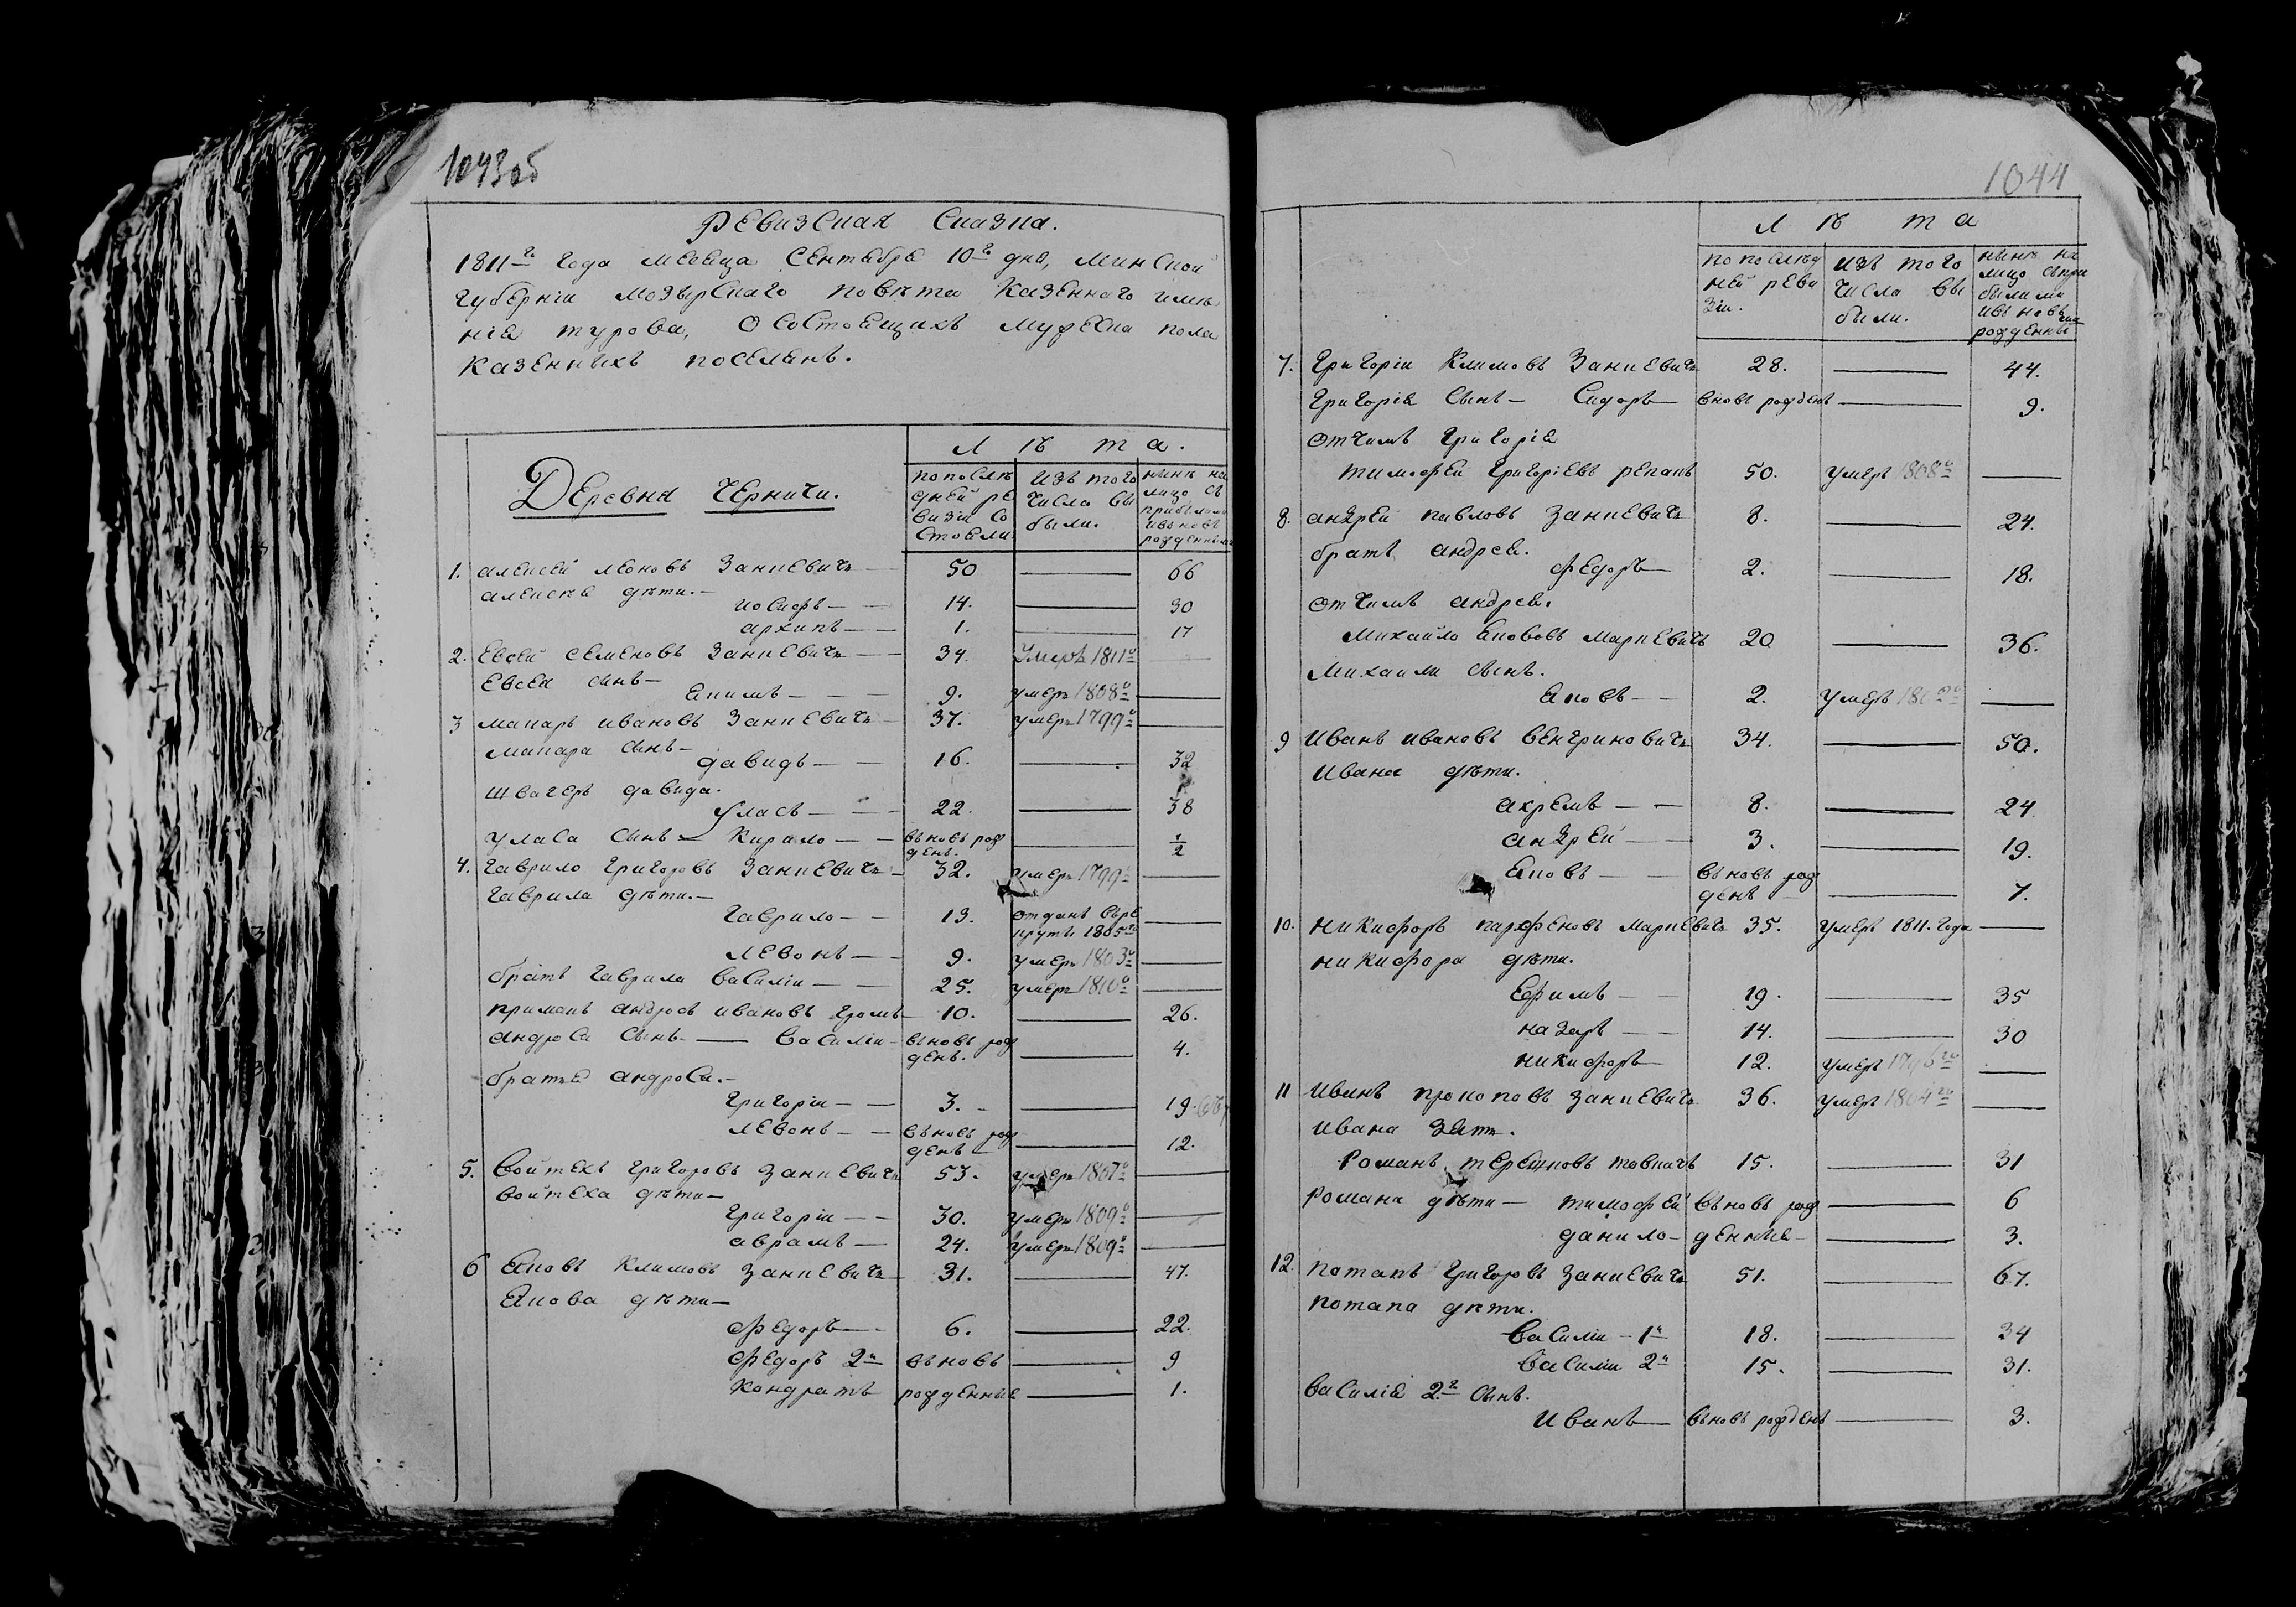 1043об
Ревизская Сказка.
1811го Года Месяца Сентября 10го дня, Минской
Губернiи мозырскаго повѣта Казеннаго имѣ
нiя турова, О состоящихъ мужеска пола
Казенныхъ поселянъ.
Деревня Черничи.
Лѣта.
по послѣ
дней ре
визiи со
стояли
изъ того
числа вы
были.
нынѣ на
лицо съ
прибылими
и вновь
рожденными
1. алексей леоновъ Занкевичъ — 50 — 66
алексѣя дѣти. —
иосифъ — 14. — 30
архипъ — 1. — 17
2. Евсей семеновъ Занкевичъ — 34. Умеръ 1811го —
Евсея сынъ —
Екимъ — 9. умеръ 1808го —
3 макаръ ивановъ Занкевичъ — 37. умеръ 1799го —
макара сынъ —
давидъ — 16. — 32
швагеръ давида.
уласъ — 22. — 38
уласа сынъ — Кирило — вьновь рож
денъ. — 1/2
4. Гаврило Григоровъ Занкевичъ — 32. умеръ 1799го —
Гаврила дѣти. —
Гаврило — 13. отданъ въ ре
круты 1805го —
левонъ — 9. умеръ 1803го —
братъ Гаврила Василiи — 25. умеръ 1810го —
примакъ андрось ивановъ Громъ — 10. — 26.
андроса сынъ — Василiи — вьновь рож
денъ. — 4.
братья андроса. —
Григорiи — 3. — 19.
левонъ — вьновь рож
денъ — 12.
5. Войтехъ Григоровъ Занкевичъ 53. умеръ 1807го —
войтеха дѣти —
Григорiи — 30. умеръ 1809го —
аврамъ — 24. умеръ 1809го —
6 Яковъ Климовъ Занкевичъ — 31. — 47.
Якова дѣти —
федоръ — 6. — 22.
федоръ 2й вьновь — 9
Кондратъ рожденные — 1.
1044
Лѣта
по послѣд
ней реви
зiи.
изъ того
числа вы
были.
нынѣ на
лицо съ при
былими
и вьновь
рожденны
7. Григорiи Климовъ Занкевичъ 28. — 44.
Григорiя Сынъ — Сидоръ — вновь рожденъ — 9.
отчимъ Григорiя
тимофеи Григорiевъ репакъ 50. умеръ 1808го —
8. андреи павловъ Занкевичъ 8. — 24.
братъ андрея.
федоръ — 2. — 18.
отчимъ андрея.
Михаило Якововъ Маркевичъ 20 — 36.
Михаила сынъ.
Яковъ — 2. умеръ —
9 Иванъ ивановъ венгриновичъ 34. — 50.
Ивана дѣти.
ахремъ — 8. — 24
андрей — 3. — 19.
Яковъ — вьновь рож
денъ — 7.
10. никифоръ парфеновъ Маркевичъ 35. умеръ 1811. Года —
никифора дѣти.
Ефимъ — 19. — 35
назаръ — 14. — 30
никифоръ — 12. умеръ —
11 Иванъ прокоповъ Занкевичъ 36. умеръ 1804го —
Ивана зять.
Романъ 15. — 31
Романа дѣти — тимофей вьновь рож — 6
данило — денные — 3.
12. потапъ Григоровъ Занкевичъ 51. — 67.
потапа дѣти.
Василiи — 1й 18. — 34
Василiи 2й 15. — 31.
Василiя 2го сынъ.
Иванъ — вьновь рожденъ — 3.